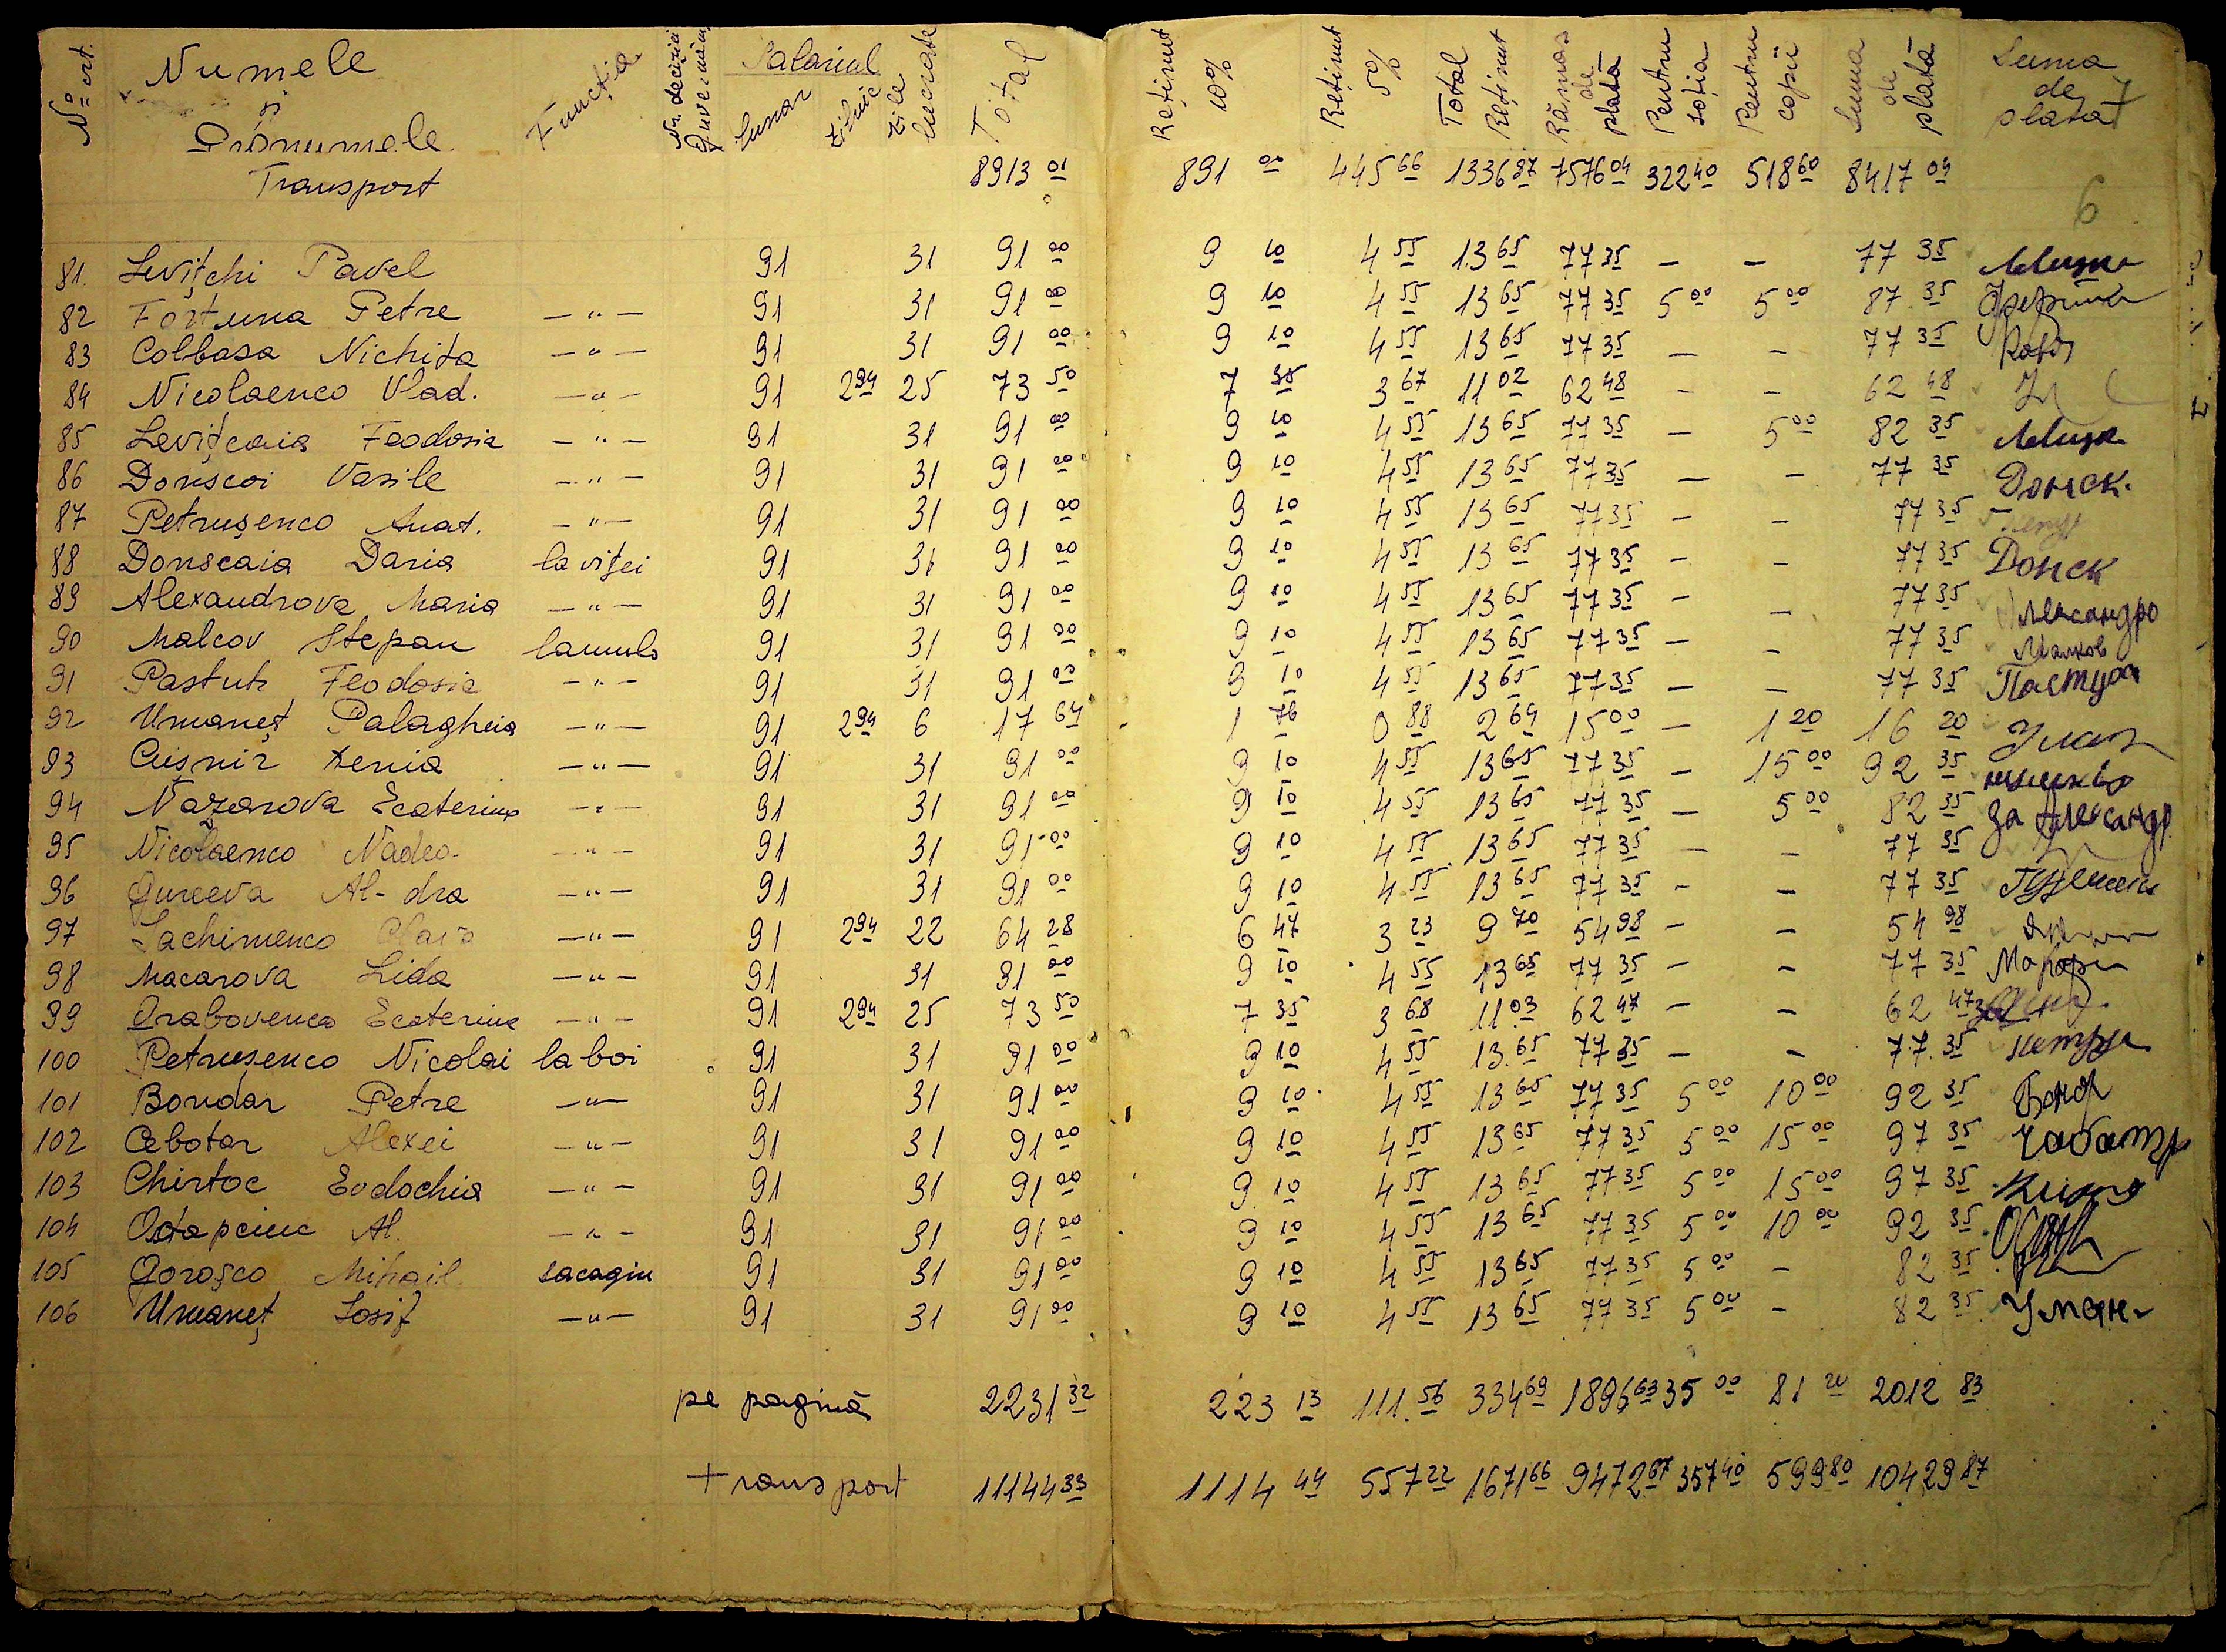 No ort. Numele și Pronumele Funcția Nr. deciziei Guvernăm. Salariul Lunar Zilnic Zile lucrate Total Reținut 10% Reținut 5% Total Reținut Rămas de plată Pentru soția Pentru copii Suma de plată Suma de plată
Transport 8913 01 891 00 445 66 1336 87 7576 04 322 40 518 60 8417 04
6
81. Levițchi Pavel 91 31 91 00 9 10 4 55 13 65 77 35 — — 77 35
82 Fortuna Petre —"— 91 31 91 00 9 10 4 55 13 65 77 35 5 00 5 00 87 35
83 Colbasa Nichita —"— 91 31 91 00 9 10 4 55 13 65 77 35 — — 77 35
84 Nicolaenco Vlad. —"— 91 2 94 25 73 50 7 35 3 67 11 02 62 48 — — 62 48
85 Levițcaia Feodosia —"— 91 31 91 00 9 10 4 55 13 65 77 35 — 5 00 82 35
86 Donscoi Vasile —"— 91 31 91 00 9 10 4 55 13 65 77 35 — — 77 35 Донск.
87 Petrușenco Anat. —"— 91 31 91 00 9 10 4 55 13 65 77 35 — — 77 35
88 Donscaia Daria la viței 91 31 91 00 9 10 4 55 13 65 77 35 — — 77 35 Донск
89 Alexandrova Maria —"— 91 31 91 00 9 10 4 55 13 65 77 35 — — 77 35 Александро
90 Malcov Stepan la muls 91 31 91 00 9 10 4 55 13 65 77 35 — — 77 35 Малков
91 Pastuh Feodosia —"— 91 31 91 00 9 10 4 55 13 65 77 35 — — 77 35 Пастуох
92 Umaneț Palagheia —"— 91 2 94 6 17 64 1 76 0 88 2 64 15 00 — 1 20 16 20 Уман
93 Cușnir Xenia —"— 91 31 91 00 9 10 4 55 13 65 77 35 — 15 00 92 35
94 Nazarova Ecaterina —"— 91 31 91 00 9 10 4 55 13 65 77 35 — 5 00 82 35 за Александр
95 Nicolaenco Nadea —"— 91 31 91 00 9 10 4 55 13 65 77 35 — — 77 35
96 Gureeva Al-dra —"— 91 31 91 00 9 10 4 55 13 65 77 35 — — 77 35
97 Iachimenco Clara —"— 91 2 94 22 64 28 6 47 3 23 9 70 54 98 — — 54 98
98 Macarova Lida —"— 91 31 91 00 9 10 4 55 13 65 77 35 — — 77 35 Макара
99 Grabovenco Ecaterina —"— 91 2 94 25 73 50 7 35 3 68 11 03 62 47 — — 62 47
100 Petrușenco Nicolai la boi 91 31 91 00 9 10 4 55 13 65 77 35 — — 77 35 петру
101 Bondar Petre —"— 91 31 91 00 9 10 4 55 13 65 77 35 5 00 10 00 92 35 Бонд
102 Cebotar Alexei —"— 91 31 91 00 9 10 4 55 13 65 77 35 5 00 15 00 97 35 Чабатр
103 Chirtoc Evdochia —"— 91 31 91 00 9 10 4 55 13 65 77 35 5 00 15 00 97 35
104 Ostapciuc Al. —"— 91 31 91 00 9 10 4 55 13 65 77 35 5 00 10 00 92 35
105 Goroșco Mihail sacagiu 91 31 91 00 9 10 4 55 13 65 77 35 5 00 — 82 35
106 Umaneț Iosif —"— 91 31 91 00 9 10 4 55 13 65 77 35 5 00 — 82 35 Уман
pe pagină 2231 32 223 13 111.56 334 69 1896 63 35 00 81 20 2012 83
transport 11144 33 1114 44 557 22 1671 66 9472 67 357 40 599 80 10429 87